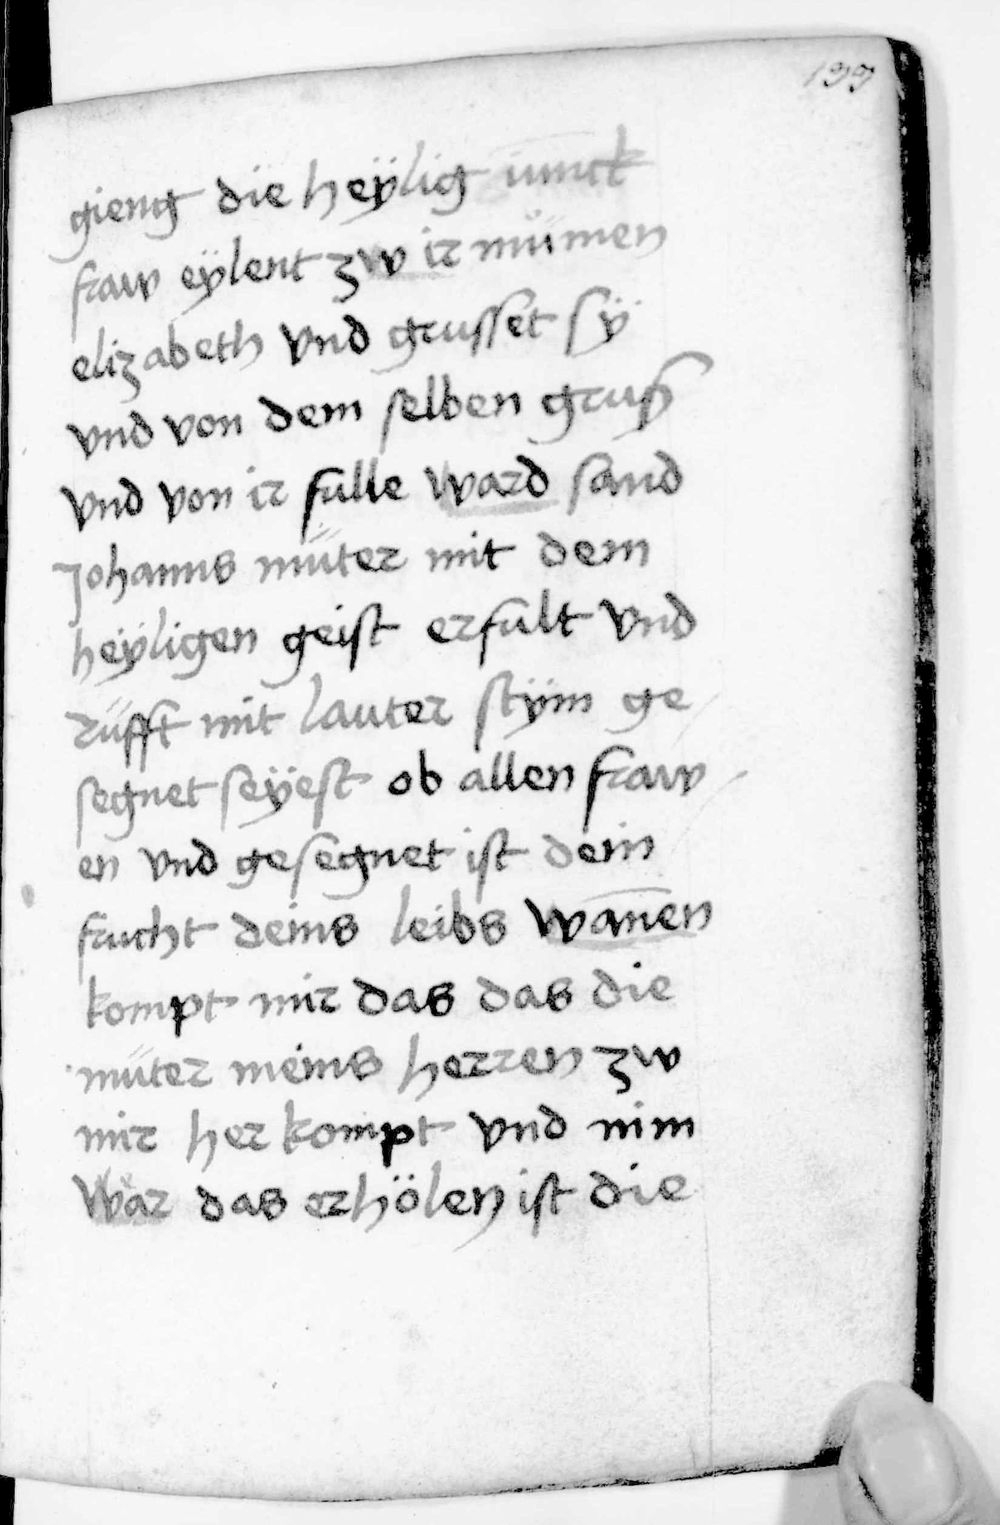 199
gieng die heÿlig iunck
fraw eÿlent zw ir mümen
elizabeth vnd grusset sÿ
vnd von dem selben gruß
vnd von ir fulle ward sand
Johanns müter mit dem
heÿligen geist erfult vnd
rüfft mit lauter stÿm ge
segnet seÿest ob allen fraw
en vnd gesegnet ist dein
frucht deins leibs wan̄en
kompt mir das das die
müter meins herren zw
mir her kompt vnd nim
war das erhölen ist die